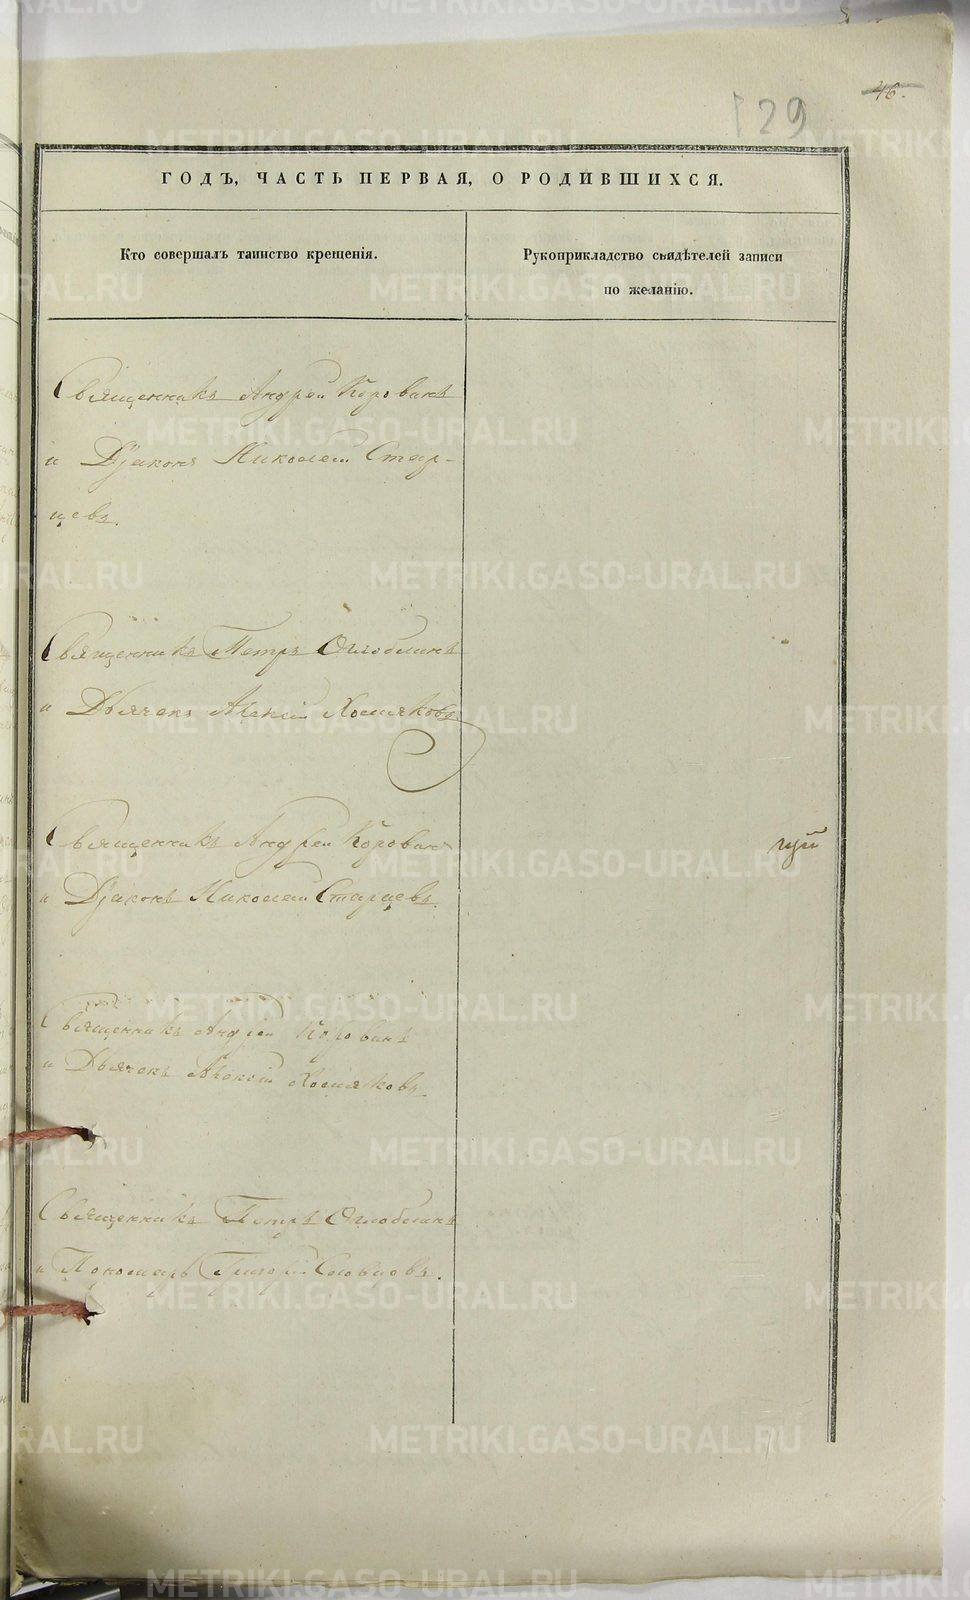 46.
129
ГОДЪ, ЧАСТЬ ПЕРВАЯ, О РОДИВШИХСЯ.
Кто совершалъ таинство крещенія.
Рукоприкладство свидѣтелей записи
по желанію.
Священникъ Андрей Корованъ
и Діаконъ Николай Стар-
цевъ.
Священникъ Петръ Оглоблинъ
и Дьячекъ Алексій Хомяковъ
Священникъ Андрей Корованъ
и Діаконъ Николай Старцевъ.
Священникъ Андрей Корованъ
и Дьячекъ Алексій Хомяковъ.
Священникъ Петръ Оглоблинъ
и Пономарь Григорій
METRIKI.GASO-URAL.RU